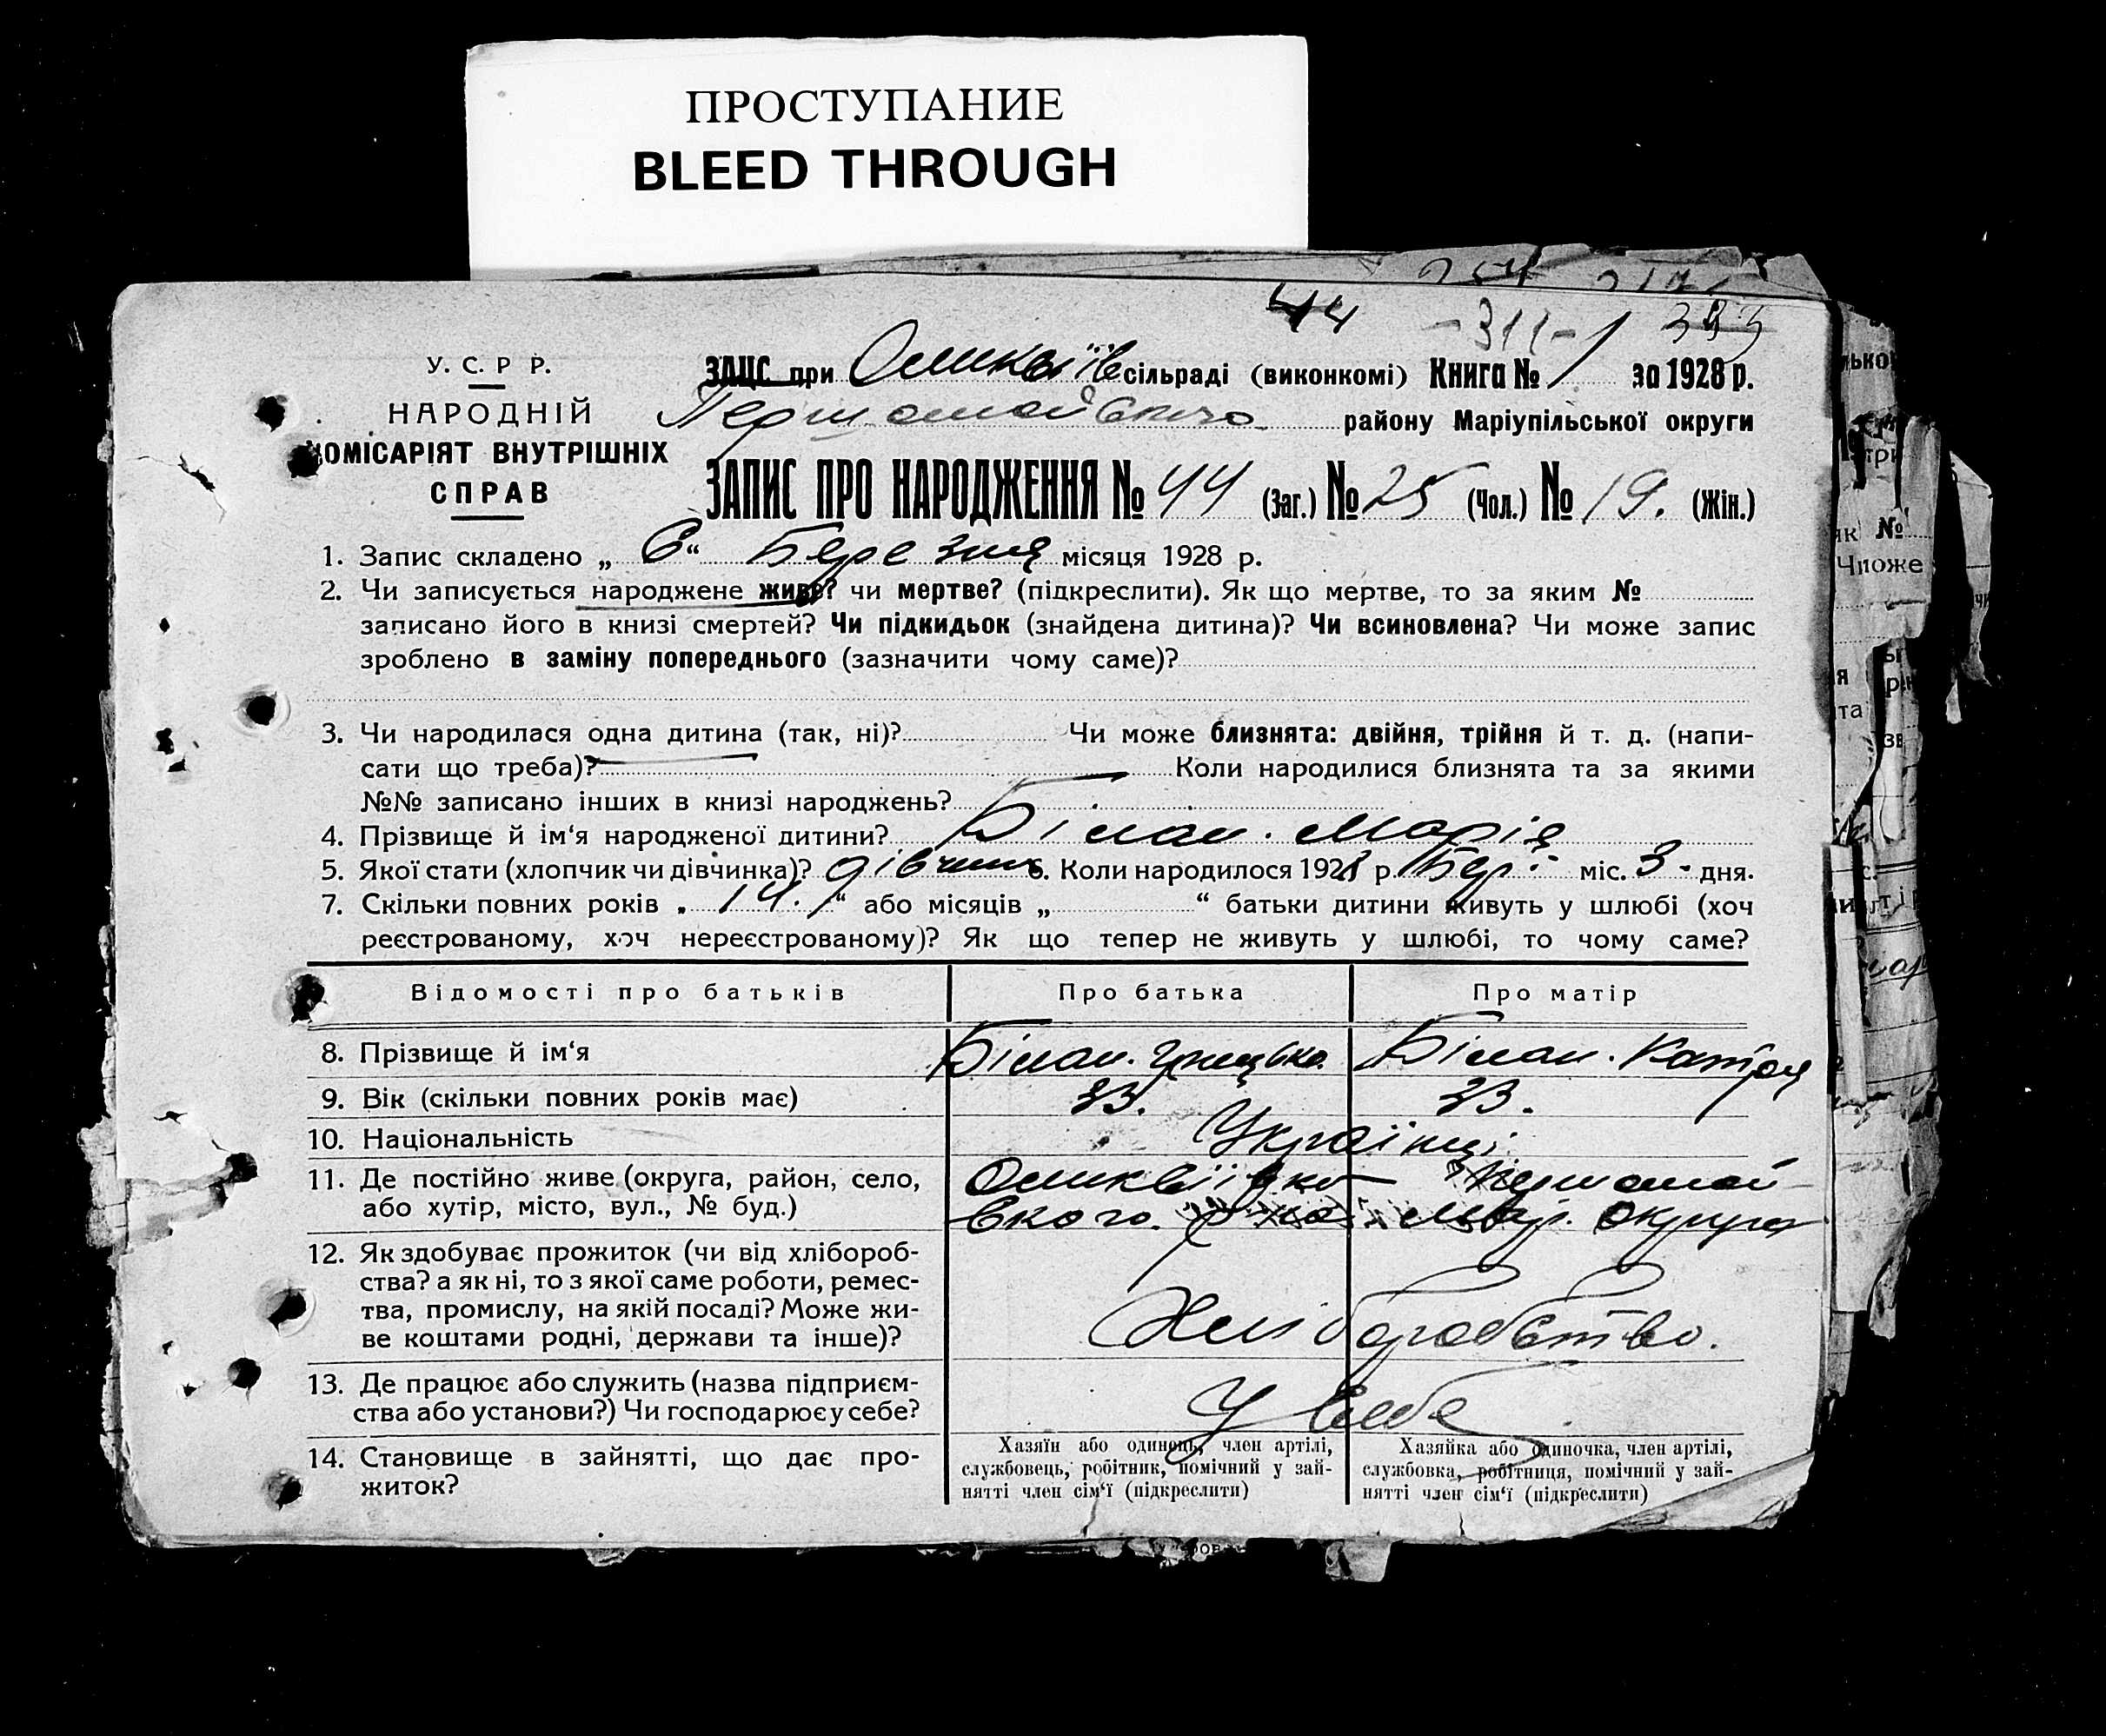 ПРОСТУПАНИЕ
BLEED THROUGH
44 -311-
У. С. Р Р.
НАРОДНІЙ
КОМІСАРІЯТ ВНУТРІШНІХ
СПРАВ
ЗАЦС при сільраді (виконкомі) Книга № 1 за 1928 р.
району Маріупільської округи
ЗАПИС ПРО НАРОДЖЕННЯ № 44 (Заг.) № 25 (Чол.) № 19. (Жін.)
1. Запис складено „ 6 “ Березня місяця 1928 р.
2. Чи записується народжене живе? чи мертве? (підкреслити). Як що мертве, то за яким №
записано його в книзі смертей? Чи підкидьок (знайдена дитина)? Чи всиновлена? Чи може запис
зроблено в заміну попереднього (зазначити чому саме)?
3. Чи народилася одна дитина (так, ні)? Чи може близнята: двійня, трійня й т. д. (напи-
сати що треба)? Коли народилися близнята та за якими
№№ записано інших в книзі народжень?
4. Прізвище й ім‘я народженої дитини? Білан. Марія
5. Якої стати (хлопчик чи дівчинка)? дівчина 6. Коли народилося 1928 р. Бер. міс. 3 дня.
7. Скільки повних років „ 14. “ або місяців „ “ батьки дитини живуть у шлюбі (хоч
реєстрованому, хоч нереєстрованому)? Як що тепер не живуть у шлюбі, то чому саме?
Відомості про батьків Про батька Про матір
8. Прізвище й ім‘я Білан. Грицько. Білан. Катря
9. Вік (скільки повних років має) 33. 33.
10. Національність Українці
11. Де постійно живе (округа, район, село,
або хутір, місто, вул., № буд.) вского. Округа
12. Як здобуває прожиток (чи від хлібороб-
ства? а як ні, то з якої саме роботи, ремес-
тва, промислу, на якій посаді? Може жи-
ве коштами родні, держави та інше)? Хліборобство.
13. Де працює або служить (назва підприєм-
ства або установи?) Чи господарює у себе? У себе
14. Становище в зайнятті, що дає про-
житок?
Хазяїн або одинець, член артілі,
службовець, робітник, помічний у зай-
нятті член сім‘ї (підкреслити)
Хазяйка або одиночка, член артілі,
службовка, робітниця, помічний у зай-
нятті член сім‘ї (підкреслити)